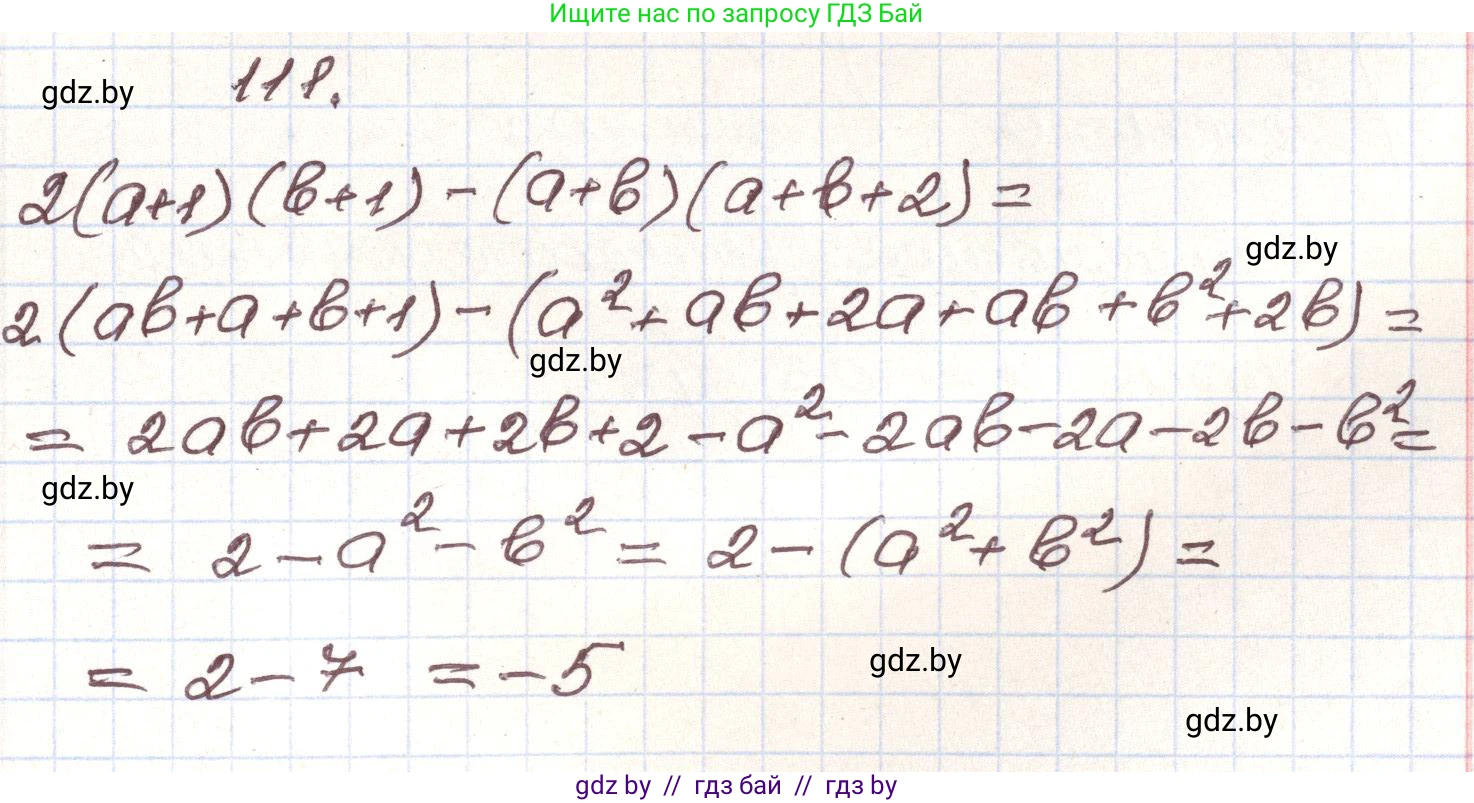 Ищите нас по запросу ГДЗ Бай
gdz.by
118.
2(a+1)(b+1)-(a+b)(a+b+2)=
gdz.by
2(ab+a+b+1)-(a²+ab+2a+ab+b²+2b)=
gdz.by
= 2ab+2a+2b+2-a²-2ab-2a-2b-b²=
gdz.by
= 2-a²-b²= 2-(a²+b²)=
= 2-7 =-5
gdz.by
gdz.by
gdz by // гдз бай // гдз by